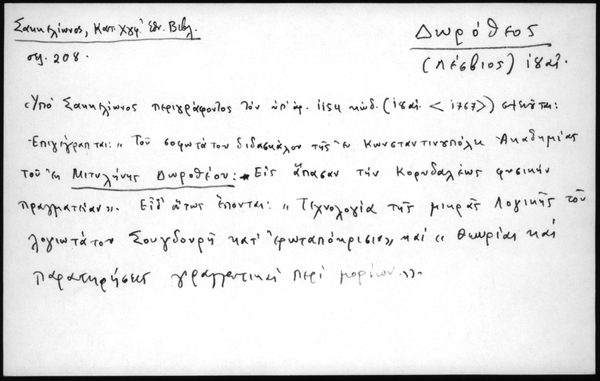 Σακκελίωνος, Κατ. Χγφ. Ἐθ. Βιβλ.
σελ. 208.
Δωρόθεος
(Λέσβιος) ιη' αἰ.
«Ὑπὸ Σακκελίωνος περιγράφοντος τὸν ὑπ' ἀρ. 1154 κώδ. (ιη' αἰ. < 1767>) :
Ἐπιγράφεται: «Τοῦ σοφωτάτου διδασκάλου τῆς ἐν Κωνσταντινουπόλει Ἀκαδημίας
τοῦ ἐκ Μιτυλήνης Δωροθέου: Εἰς ἅπασαν τὴν Κορυδαλέως φυσικὴν
πραγματείαν». Εἶθ' οὕτως ἕπονται: «Τεχνολογία τῆς μικρᾶς Λογικῆς τοῦ
λογιωτάτου Σουγδουρῆ κατ' ἐρωταπόκρισιν» καὶ «Θεωρίαι καὶ
παρατηρήσεις γραμματικαὶ περὶ μορίων».